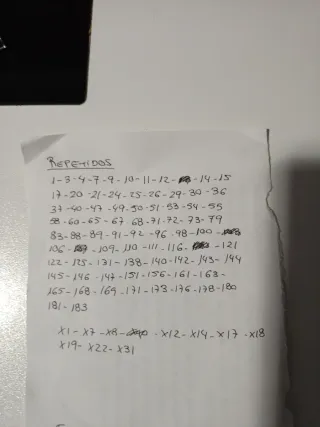 REPETIDOS
1-3-4-7-9-10-11-12- -14-15
17-20-21-24-25-26-29-30-36
37-40-47-49-50-51-53-54-55
58-60-65-67 68-71-72-73-79
83-88-89-91-92-96-98-100-
106- -109-110-111-116- -121
122-125-131-138-140-142-143-144
145-146-147-151-156-161-163-
165-168-169-171-173-176-178-180
181-183
X1-X7-X8- -X12-X14-X17-X18
X19-X22-X31